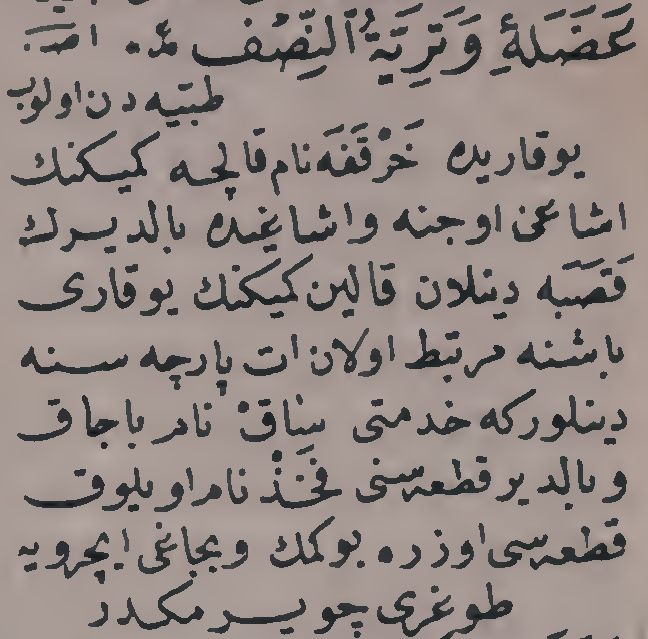 عَضَلَهٔ وَتَرِيَّهُ ٱلنِّصْف مذ. اصـ:
طبّيه دن اولوب
يوقاريده حَرْقَفَه نام قالجه كميكنك
اشاغى اوجنه واشاغيده بالديرك
قَصَبَه دينلان قالين كميكنك يوقارى
باشنه مرتبط اولان ات پارچه سنه
دينلوركه خدمتى سَاقْ نام باجاق
وبالدير قطعه سنى فَخَذْ نام اويلوق
قطعه سى اوزره بوكمك وبجاغى ايچرويه
طوغرى چويرمكدر